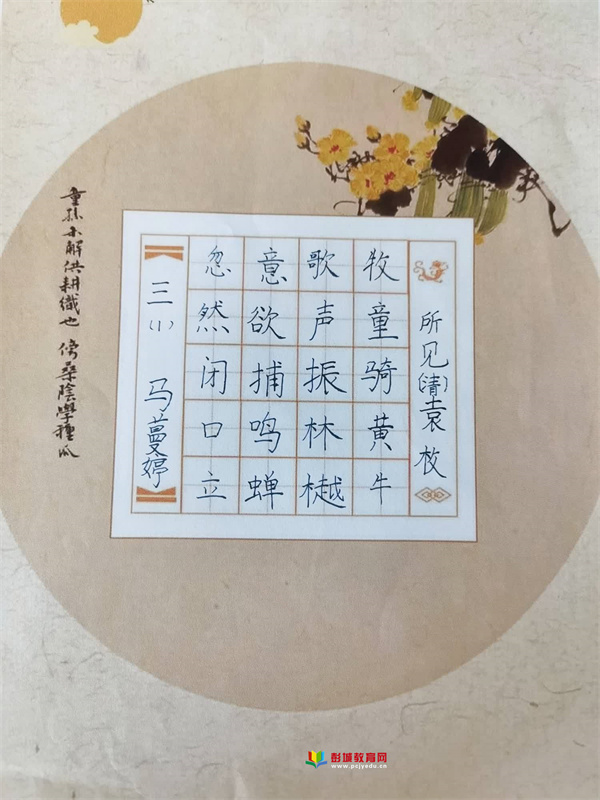 所见(清)袁枚
牧童骑黄牛
歌声振林樾
意欲捕鸣蝉
忽然闭口立
三(1) 马蔓婷
童孫未解供耕織也 傍桑陰學種瓜
彭城教育网
www.pcjyedu.cn